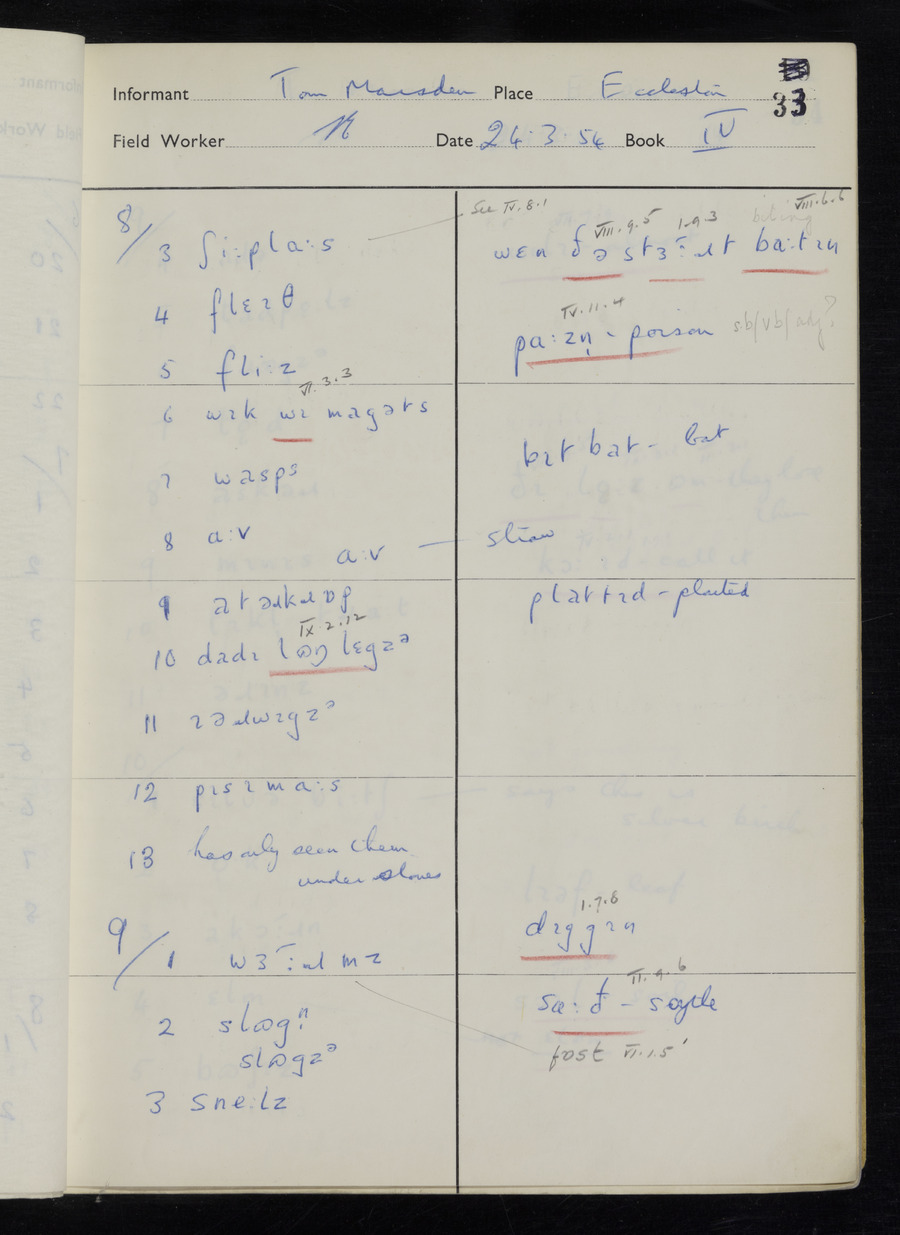 33
Informant Tom Marsden Place Eccleston
Field Worker Date 24.3.54 Book IV
8/
3 ʃi:pla:s
See IV.8.1
4 flɛɪθ
5 fli:z
VI.3.3
6 wɪk wɪ magəts
7 wasps
8 a:v
a:v — straw
9
IX.2.12
10 dadɪ lɒŋ lɛgz
11
12 pɪsɪma:s
13 has only seen them
under stones
9/
1
2 slɒg
slɒgz
3 sne:lz
VIII.9.5 I.9.3 biting VIII.6.6
wɛn ðə ba:tɪn
IV.11.4
pa:zn̩ - poison sb/vb/adj?
bɪt bat - bat
platɪd - plaited
I.7.8
dɪggɪn
II.9.6
- scythe
fost VI.1.5